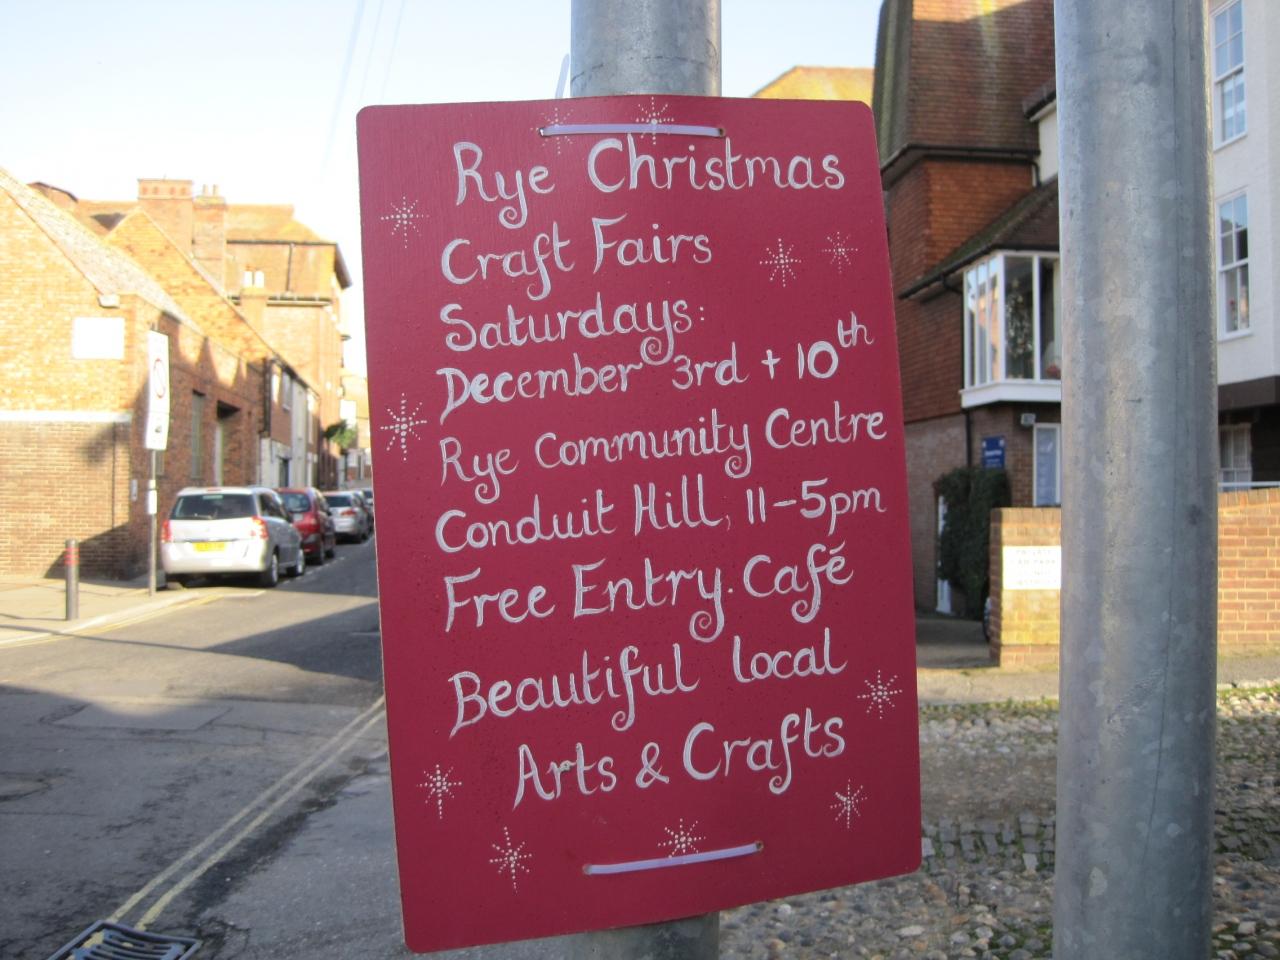 Rye Christmas
Craft Fairs
Saturdays:
December 3rd + 10th
Rye Community Centre
Conduit Hill, 11-5pm
Free Entry. Café
Beautiful local
Arts & Crafts